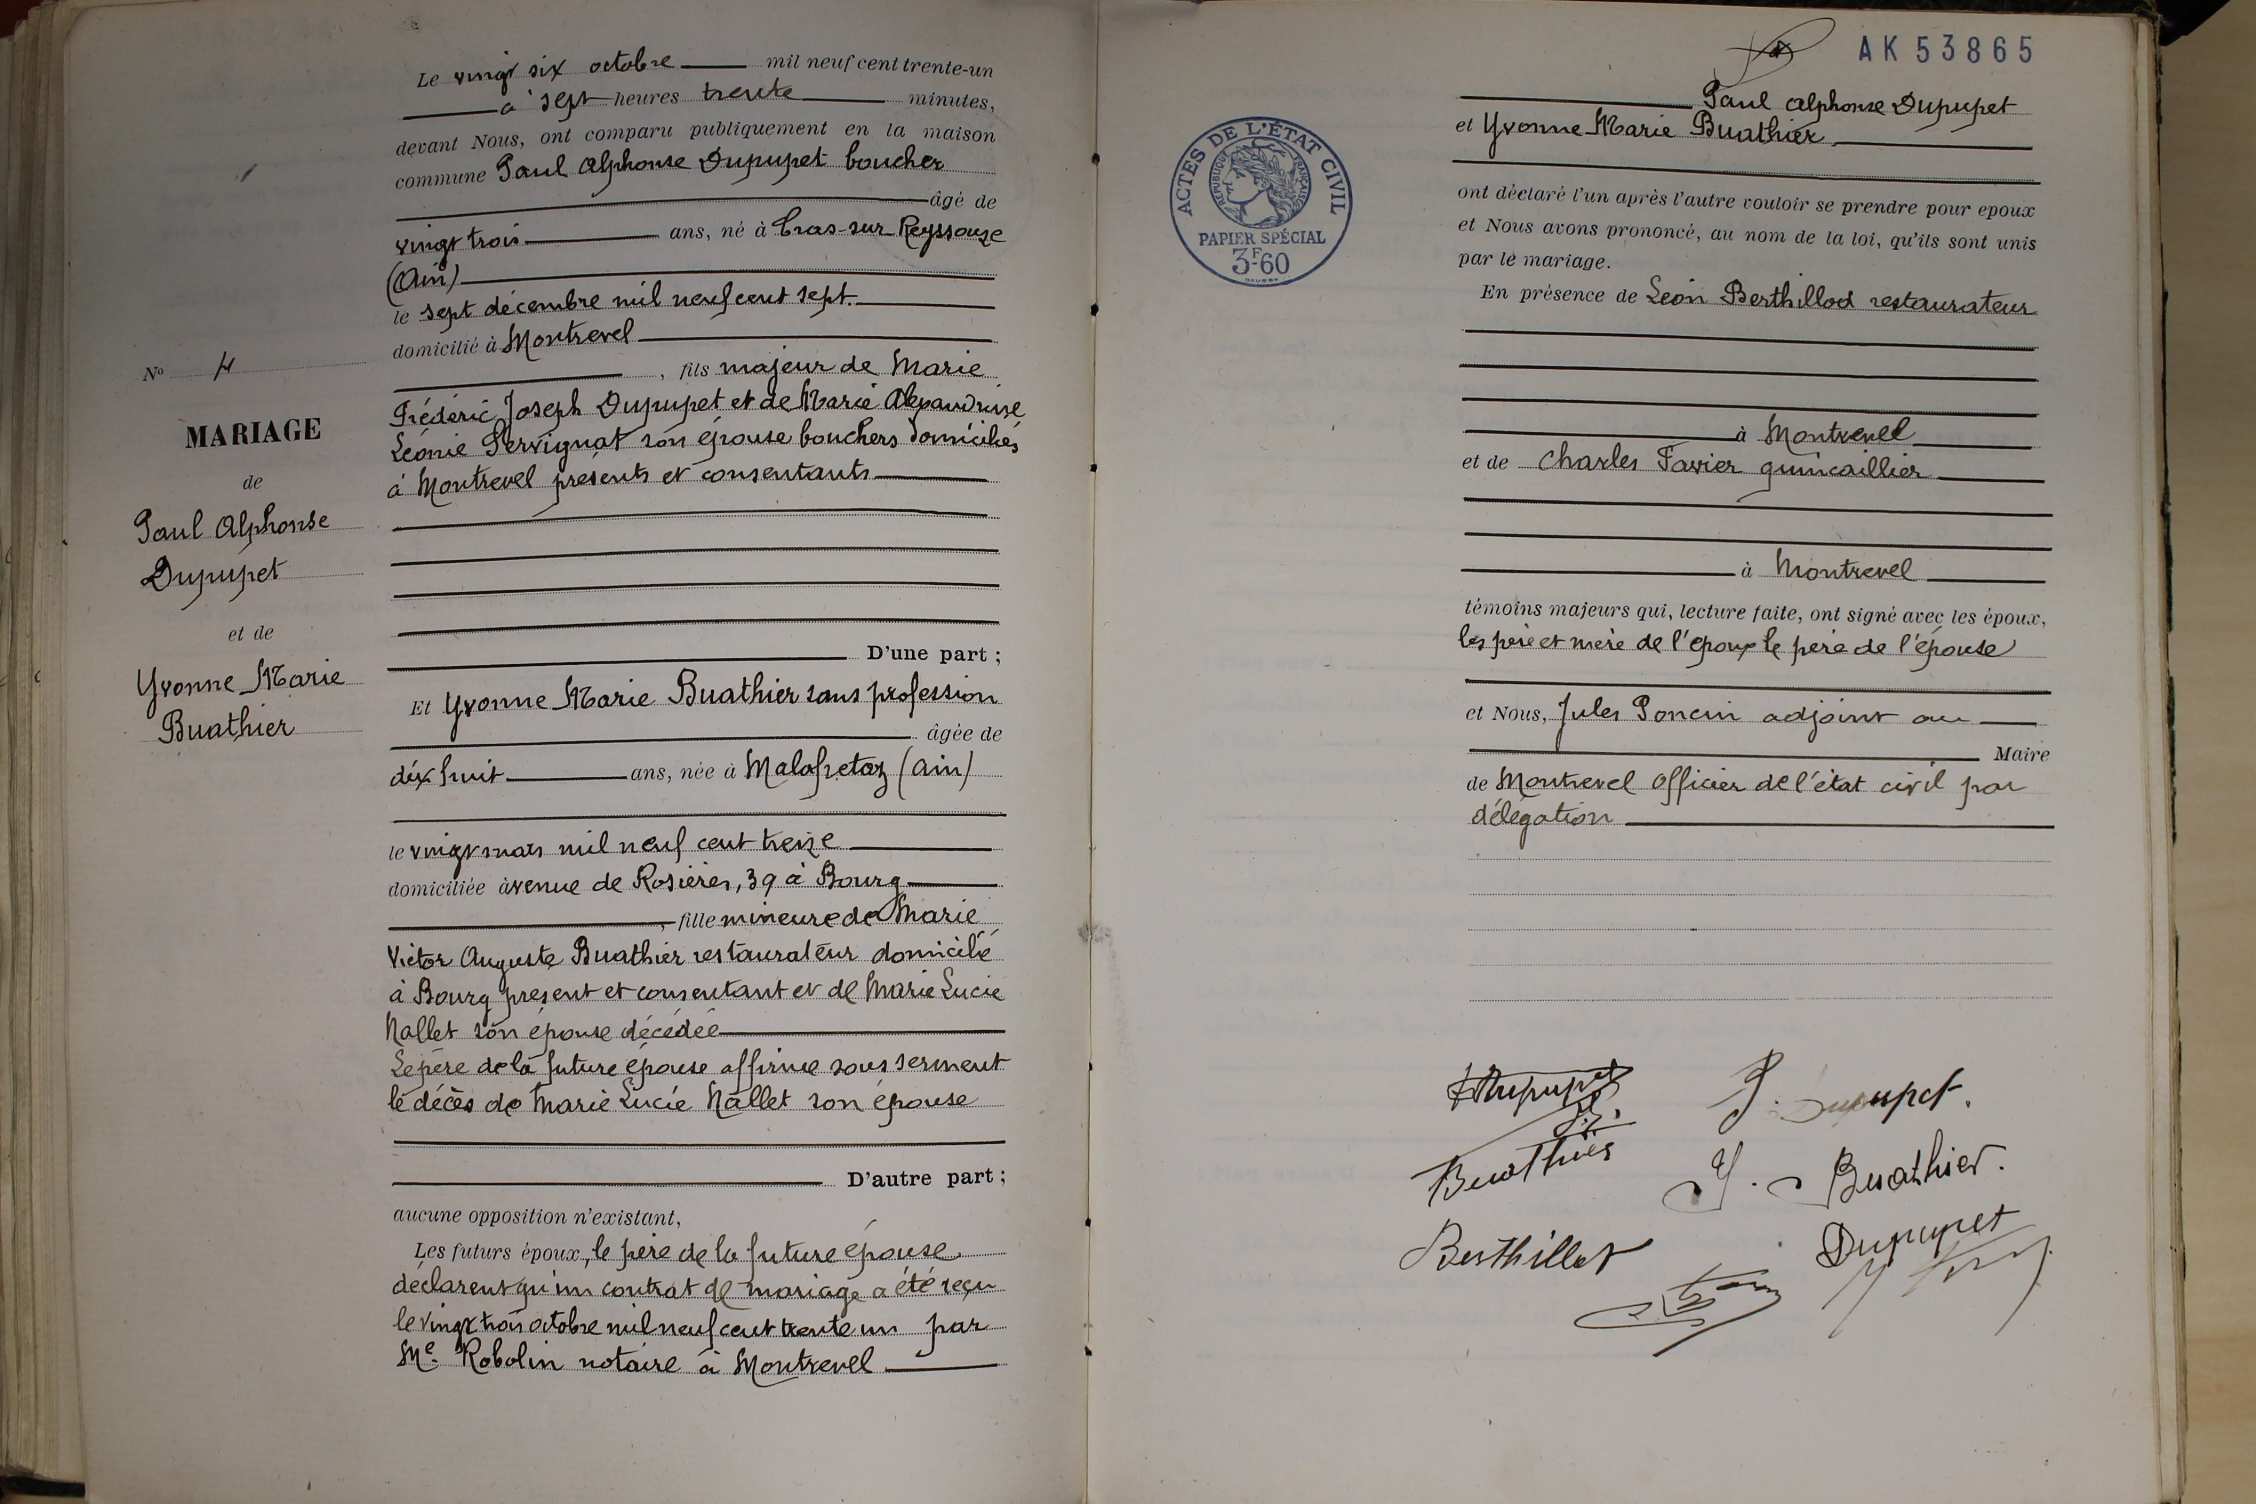 Le vingt six octobre mil neuf cent trente-un
à sept heures trente minutes,
devant Nous, ont comparu publiquement en la maison
commune Paul Alphonse Dupupet boucher
âgé de
vingt trois ans, né à Cras-sur Reyssouze
(Ain)
le sept décembre mil neuf cent sept.
domicilié à Montrevel
, fils majeur de Marie
Frédéric Joseph Dupupet et de Marie Alexandrine
Léonie Servignat son épouse bouchers domiciliés
à Montrevel présents et consentants
D'une part ;
Et Yvonne Marie Buathier sans profession
âgée de
dix huit ans, née à Malafretaz (Ain)
le vingt mars mil neuf cent treize
domiciliée avenue de Rosières, 39 à Bourg
, fille mineure de Marie
Victor Auguste Buathier restaurateur domicilié
à Bourg présent et consentant et de Marie Lucie
Nallet son épouse décédée
Le père de la future épouse affirme sous serment
le décès de Marie Lucie Nallet son épouse
D'autre part ;
aucune opposition n'existant,
Les futurs époux, le père de la future épouse
déclarent qu'un contrat de mariage a été reçu
le vingt trois octobre mil neuf cent trente un par
Me Robolin notaire à Montrevel
No 4
MARIAGE
de
Paul Alphonse
Dupupet
et de
Yvonne Marie
Buathier
AK 53865
ACTES DE L'ÉTAT CIVIL
RÉPUBLIQUE FRANÇAISE
PAPIER SPÉCIAL
3F-60
Paul Alphonse Dupupet
et Yvonne Marie Buathier
ont déclaré l'un après l'autre vouloir se prendre pour epoux
et Nous avons prononcé, au nom de la loi, qu'ils sont unis
par le mariage.
En présence de Léon Berthillod restaurateur
à Montrevel
et de Charles Favier quincaillier
à Montrevel
témoins majeurs qui, lecture faite, ont signé avec les époux,
les père et mère de l'époux le père de l'épouse
et Nous, Jules Poncin adjoint au
Maire
de Montrevel officier de l'état civil par
délégation
Dupupet
P. Dupupet.
Buathier
Y. Buathier.
Berthillot
Dupupet